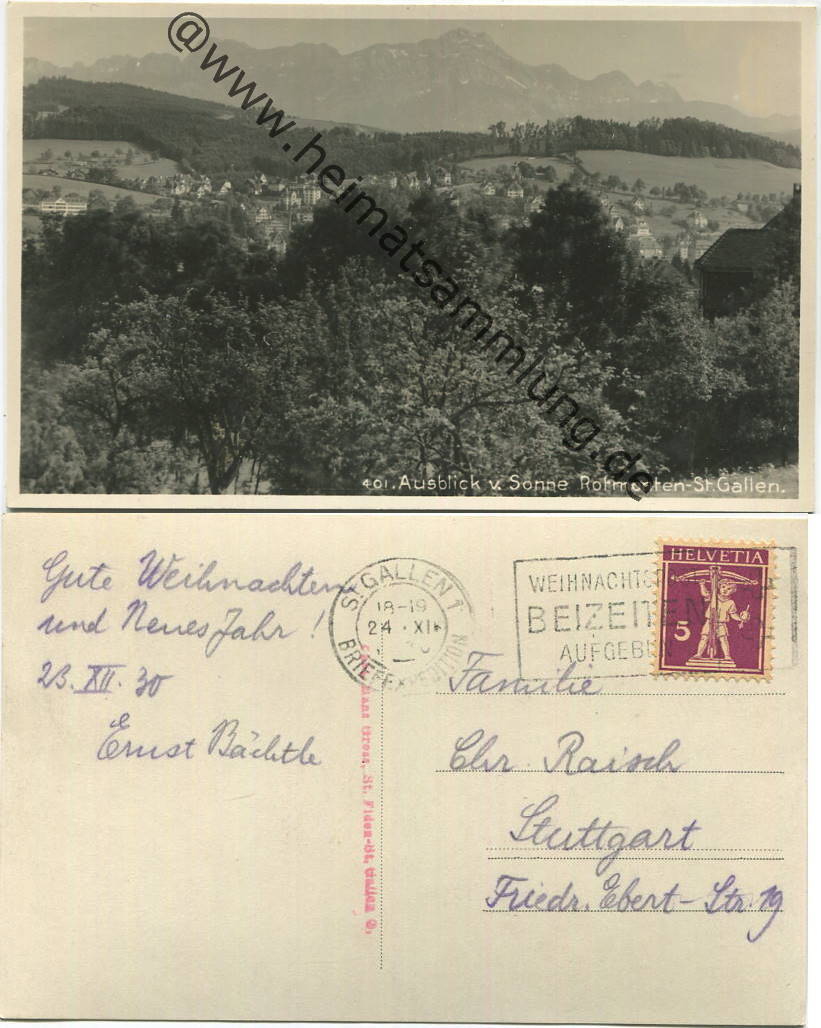 @www.heimatsammlung.de
401. Ausblick v. Sonne Rotmonten-St. Gallen.
Gute Weihnachten
und Neues Jahr!
23. XII. 30
Ernst Bächtle
ST. GALLEN 1
18-19
24. XII
BRIEFEXPEDITION
WEIHNACHTS
BEIZEITEN
AUFGEBEN
HELVETIA
5
Hans Gross, St. Fiden-St. Gallen O.
Familie
Chr. Raisch
Stuttgart
Friedr. Ebert-Str. 19